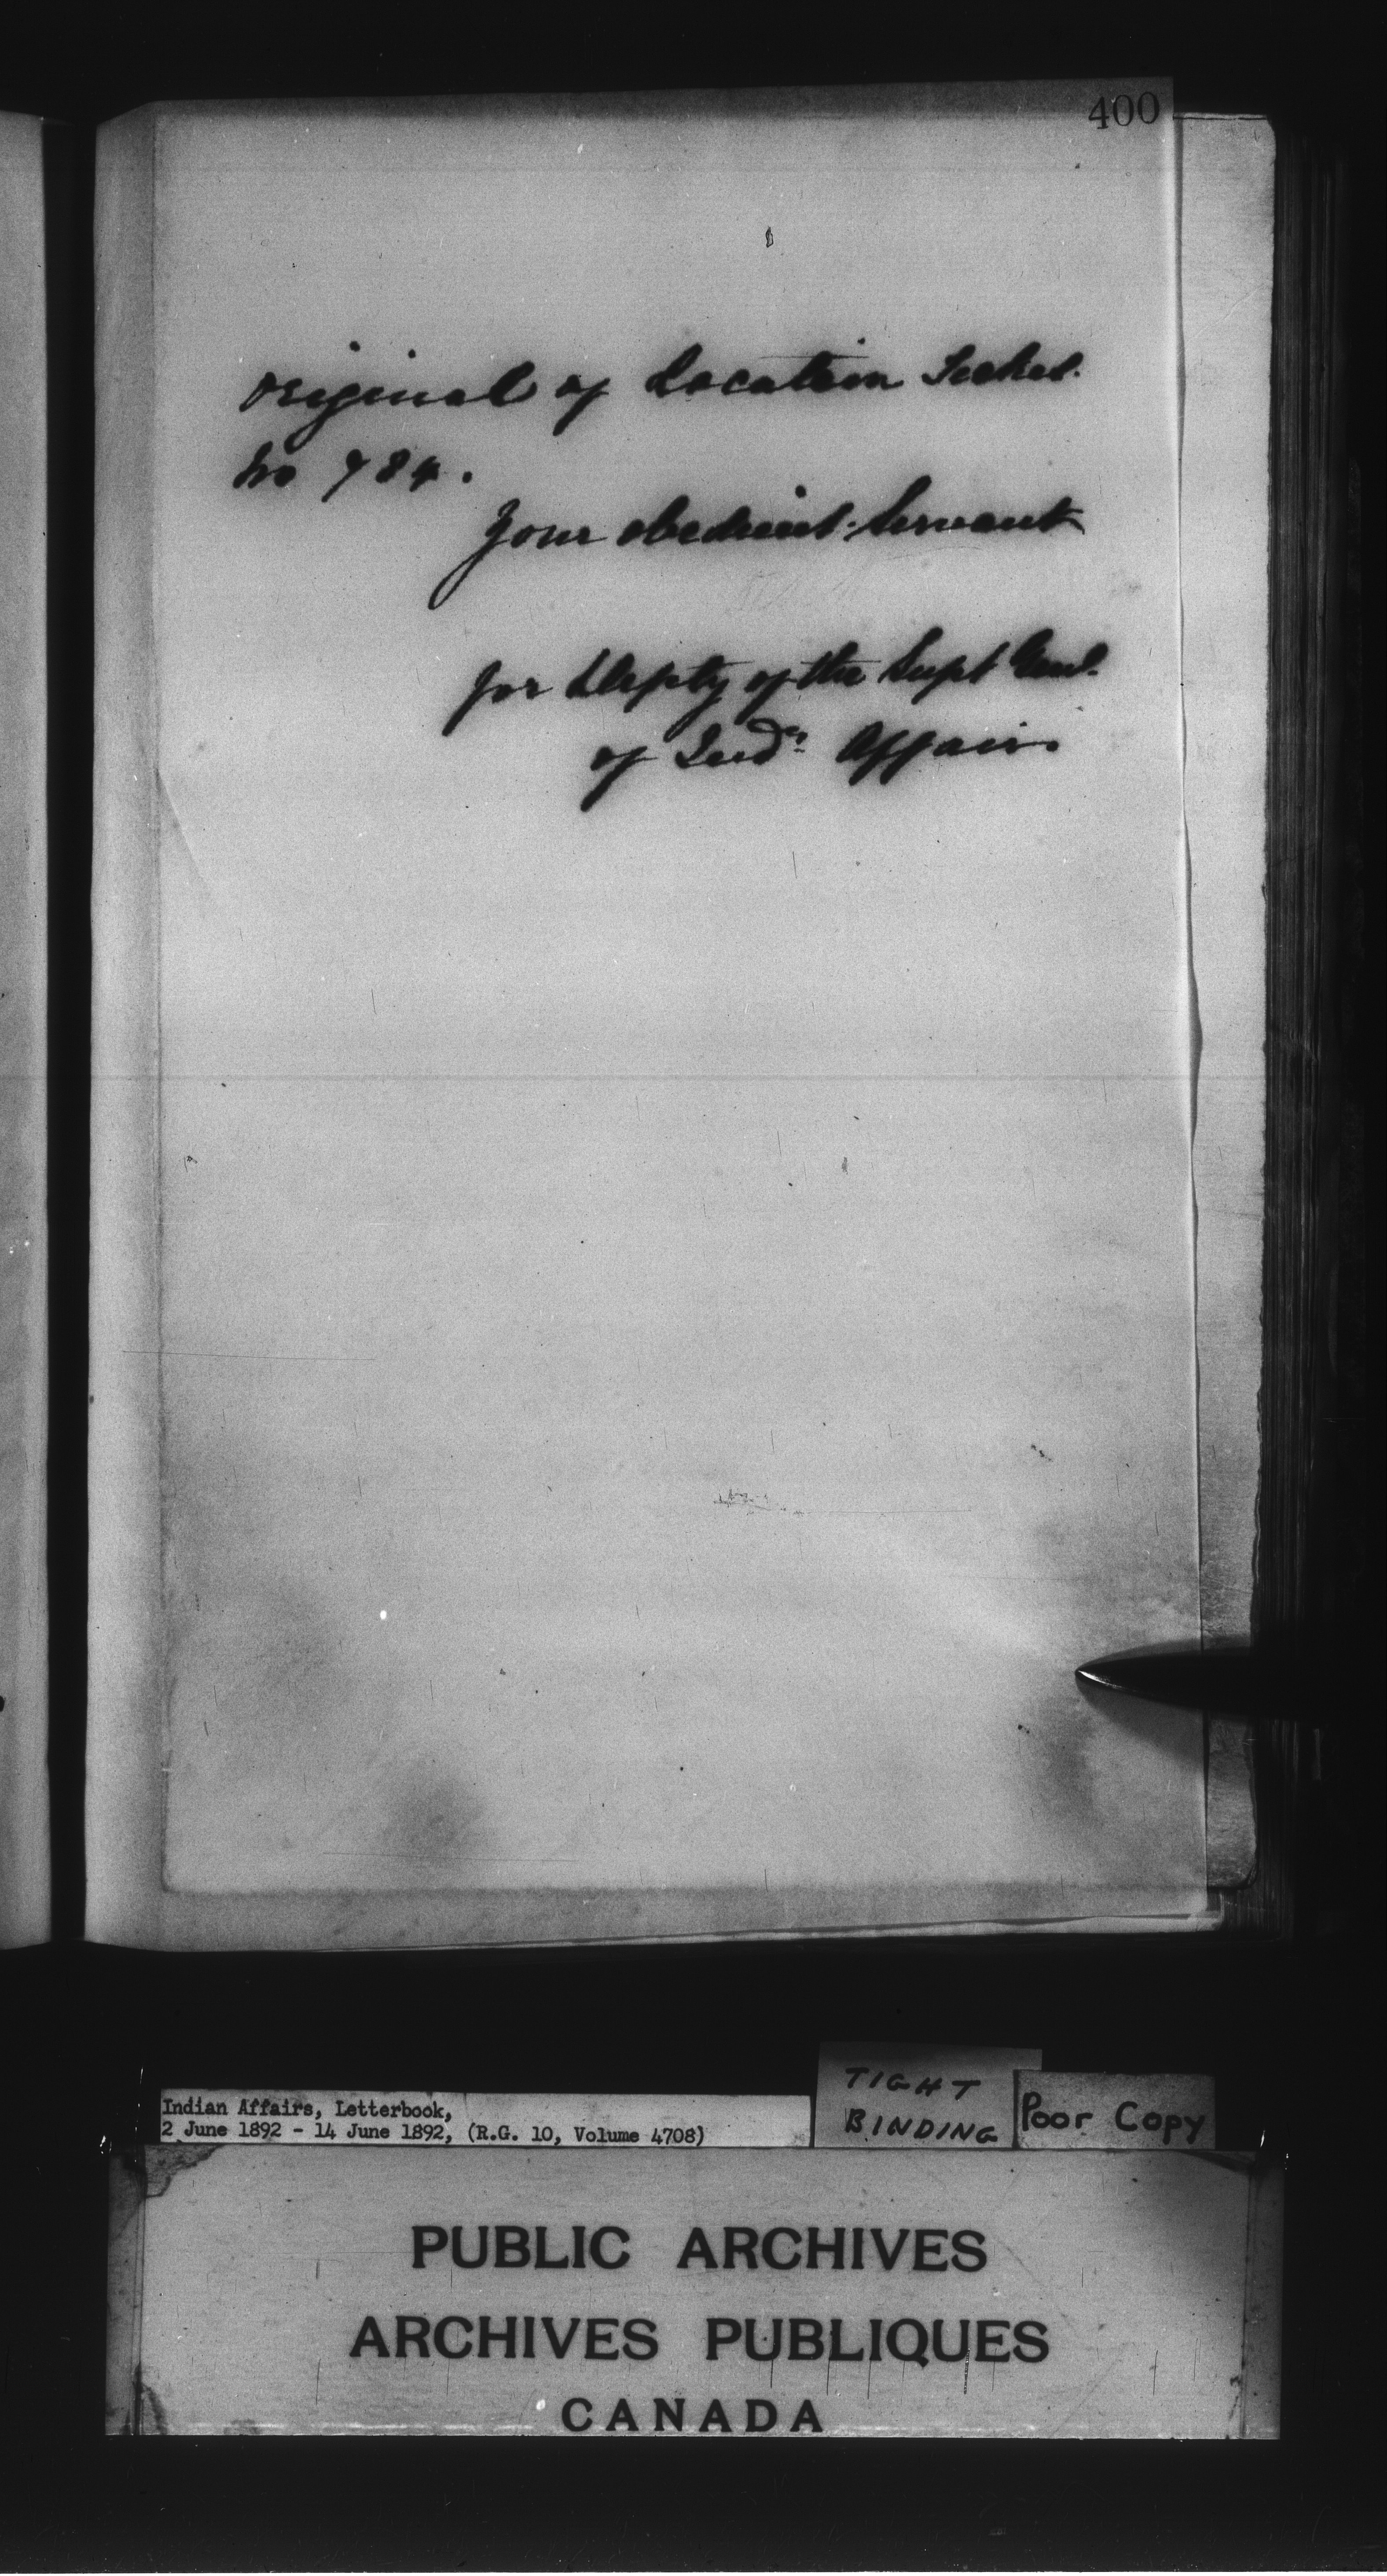 400
original of Location Ticket
No 784.
Your obedient Servant
for Depty of the Supt Genl.
of Indn Affairs
Indian Affairs, Letterbook,
2 June 1892 - 14 June 1892, (R.G. 10, Volume 4708)
TIGHT
BINDING
Poor Copy
PUBLIC ARCHIVES
ARCHIVES PUBLIQUES
CANADA